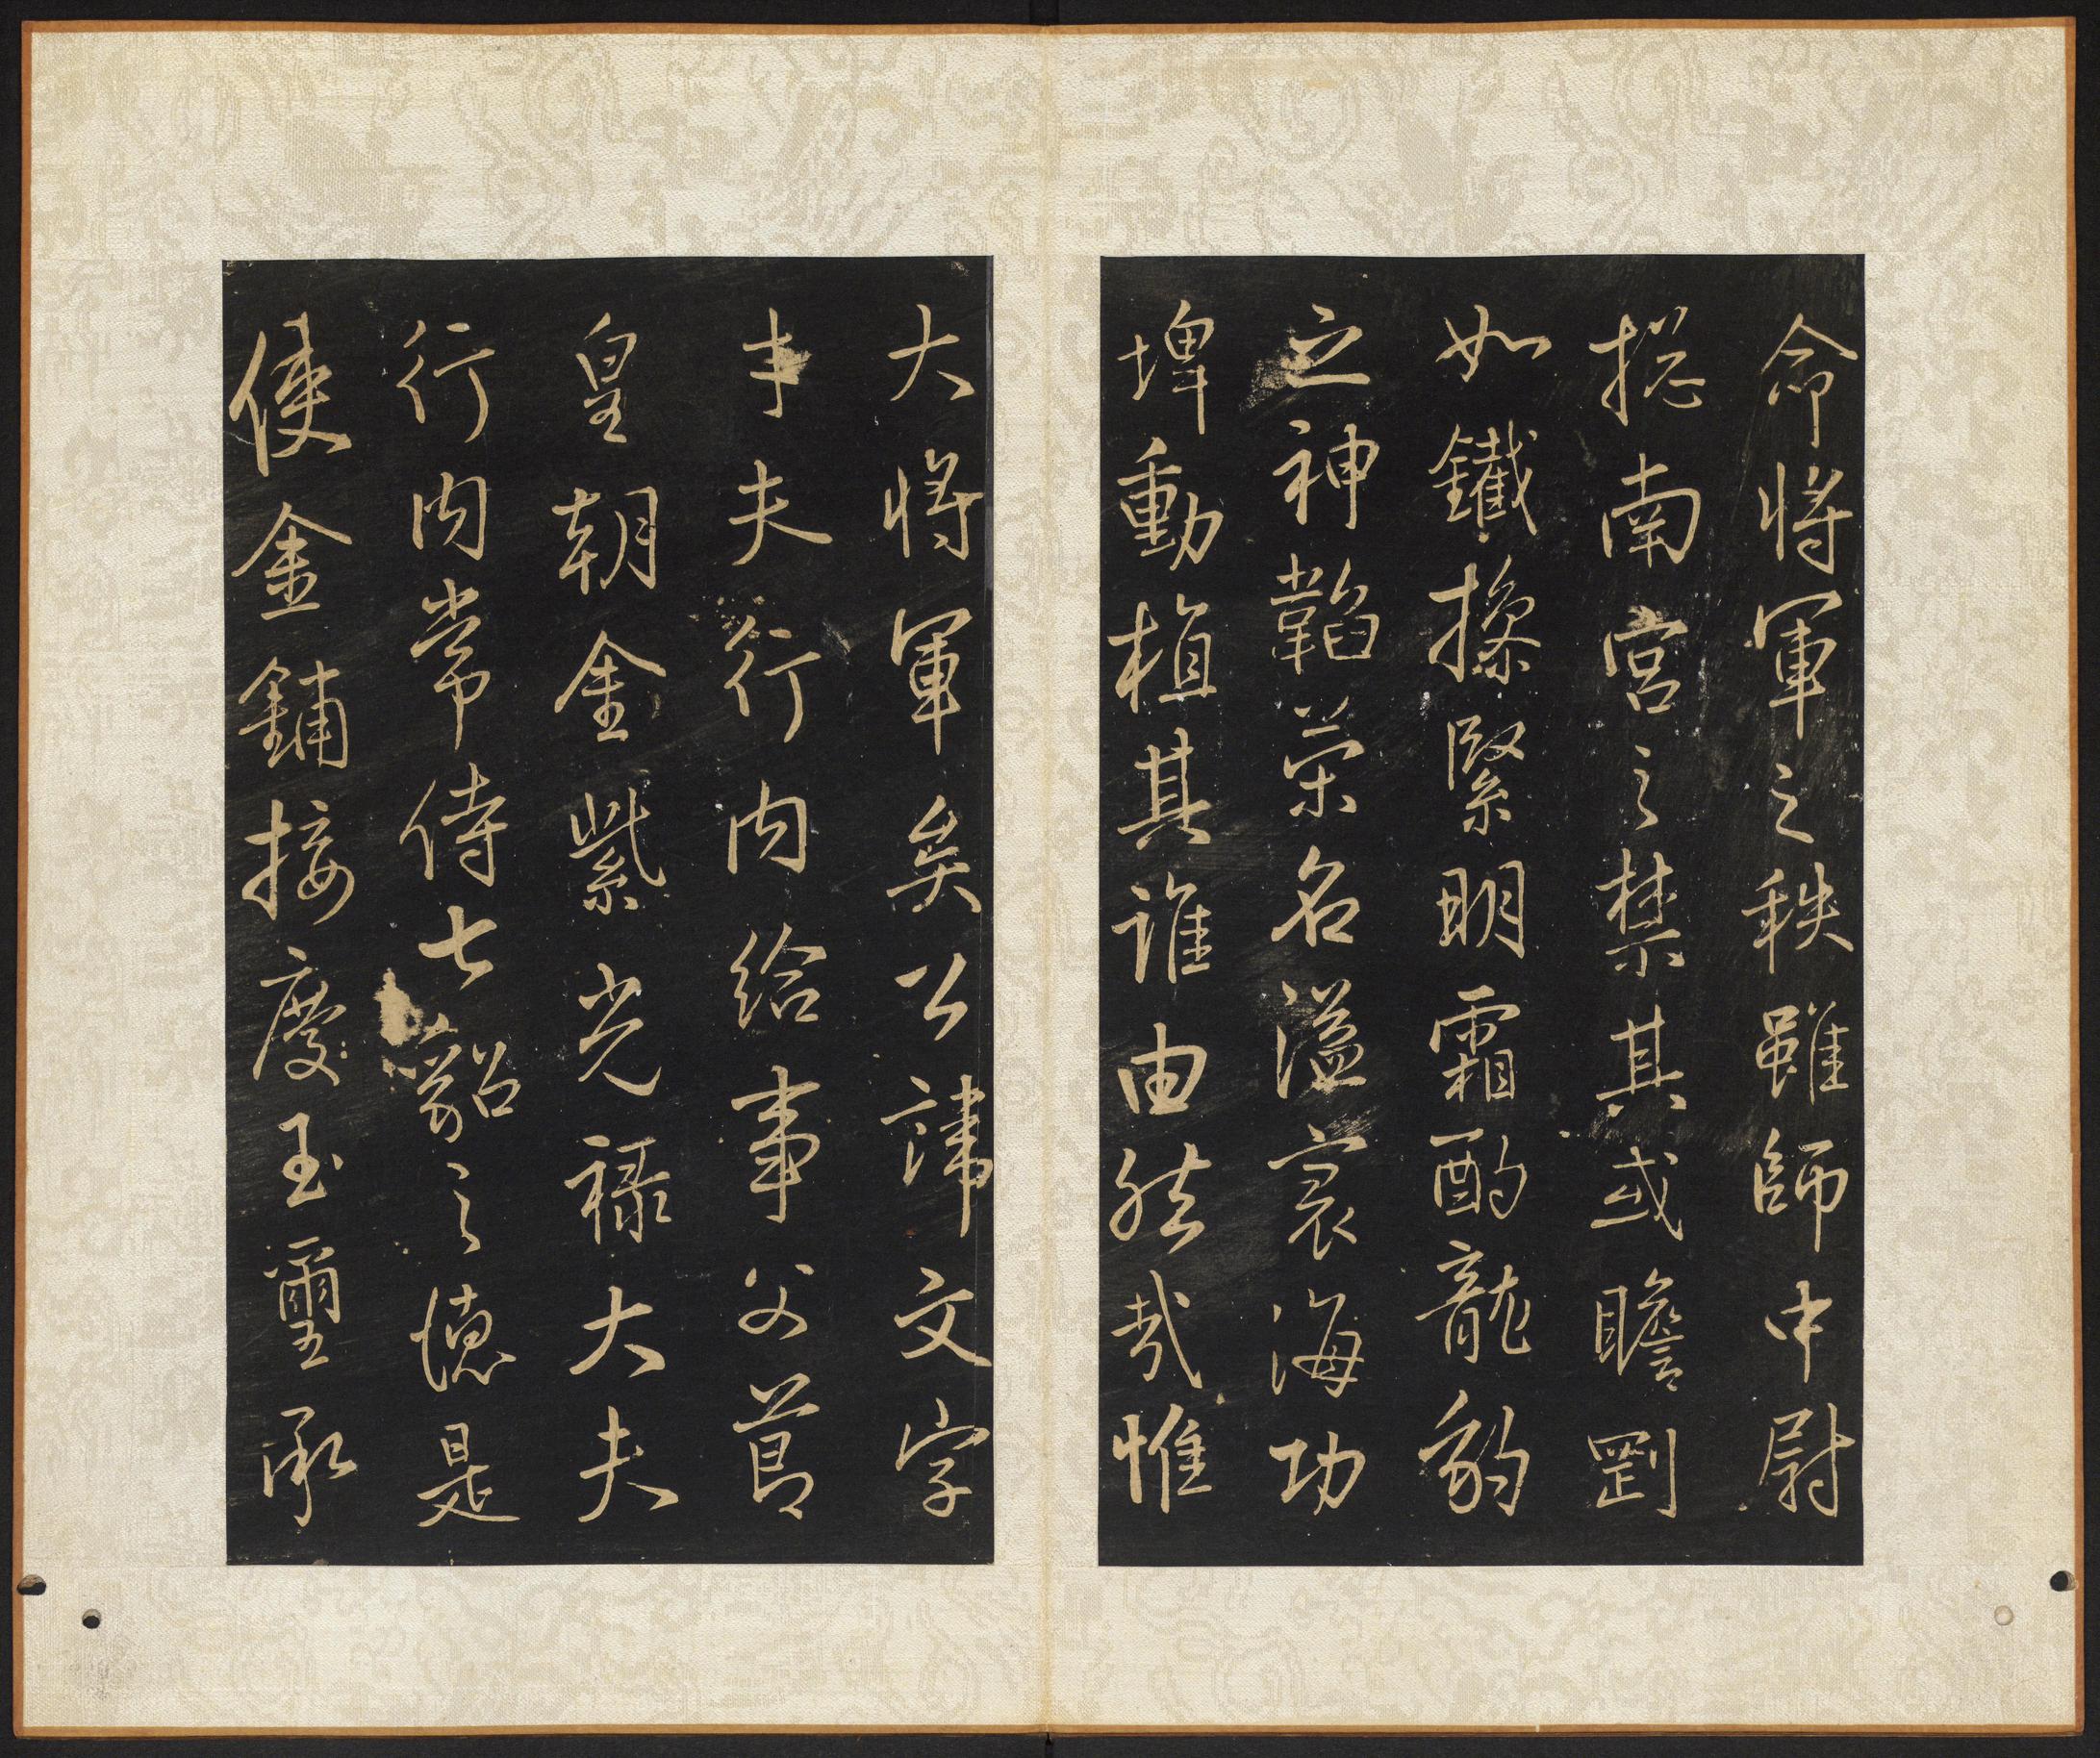 命將軍之秩雖師中尉
揔南宮之禁其或瞻𠛬
如鐵操緊明霜酌龍豹
之神韜榮名溢寰海功
埤動植其誰由然哉惟
大將軍矣公諱文字
才夫行內給事父節
皇朝金紫光祿大夫
行內常侍七貂之德是
使金鋪接慶玉璽承